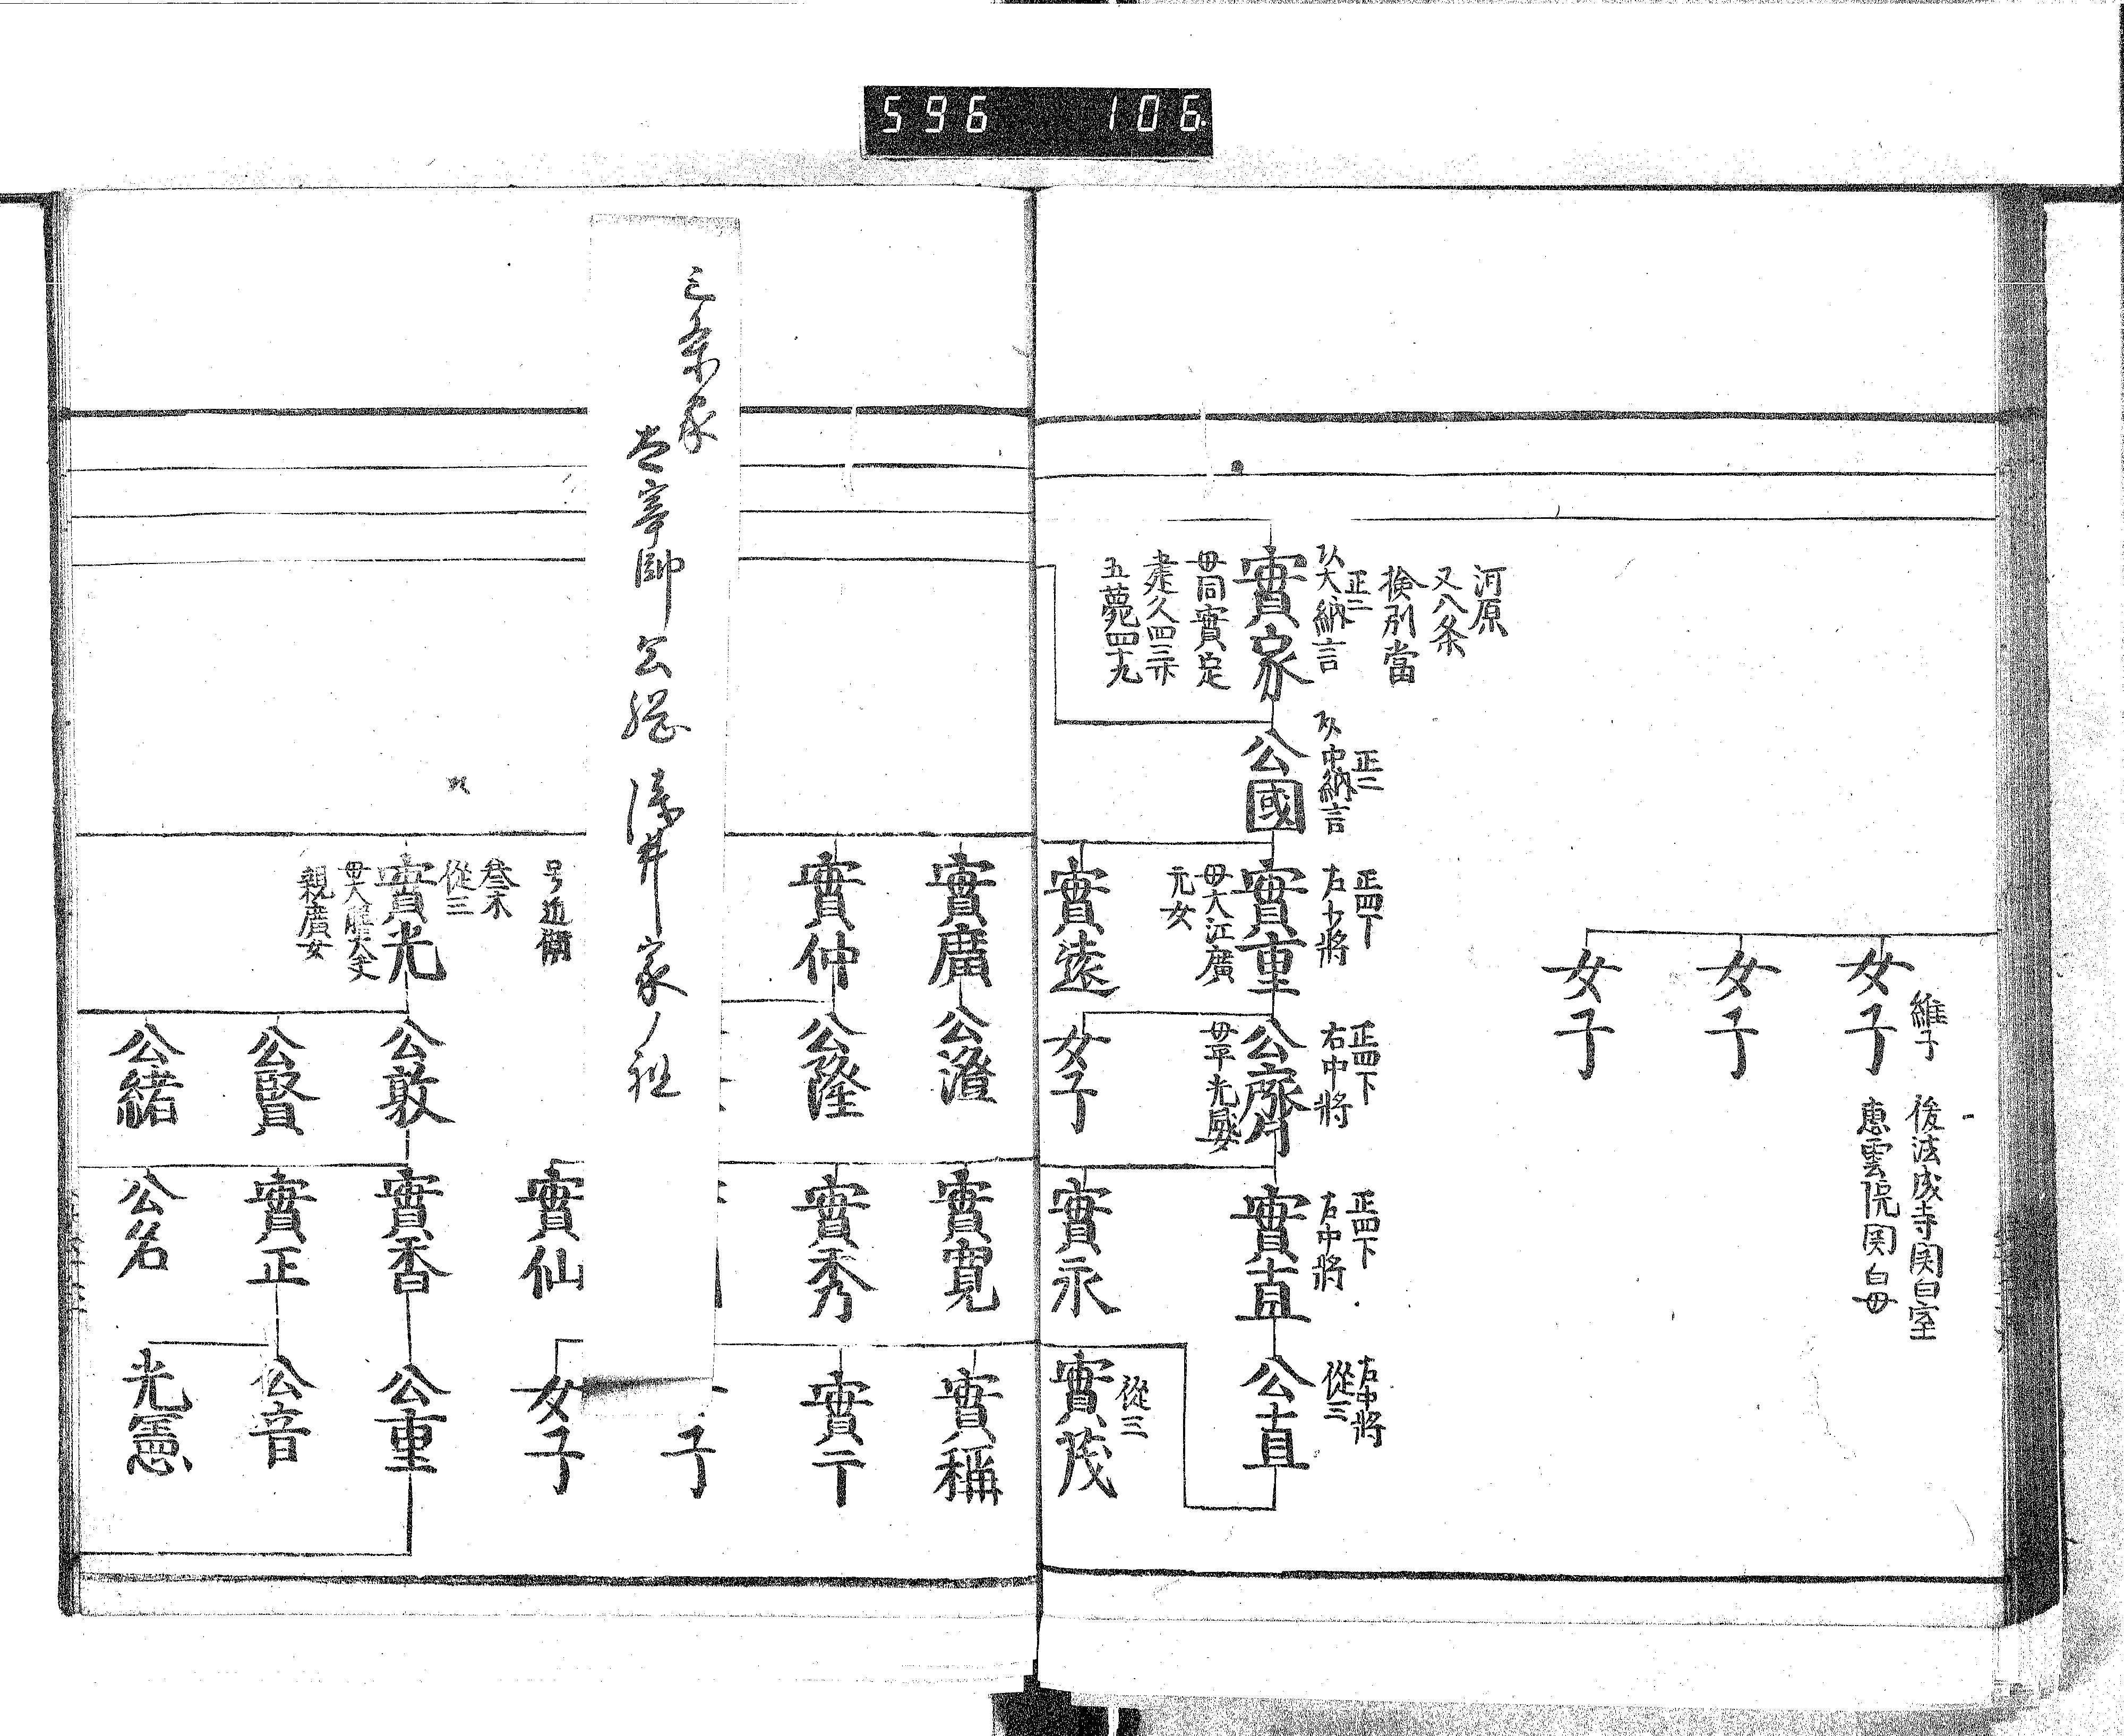 596 106
女子
維子
後法成寺関白室
恵雲院関白母
女子
女子
河原
又八条
検別當
正二
大納言
實家
母同實定
建久四三十
五薨四十九
正二
中納言
公國
正四下
右少將
實重
母大江廣
元女
實遠
正四下
右中將
公齊
母平光盛女
女子
正四下
右中將
實直
實永
右中將
從三
公直
從三
實茂
實廣
公澄
實寛
實稱
實仲
公隆
實秀
實
子
三条家
太宰帥
家ノ祖
号近衛
實仙
女子
參木
從三
實光
母大膳大夫
親廣女
公敦
實香
公重
公賢
實正
公音
公緒
公名
光憲